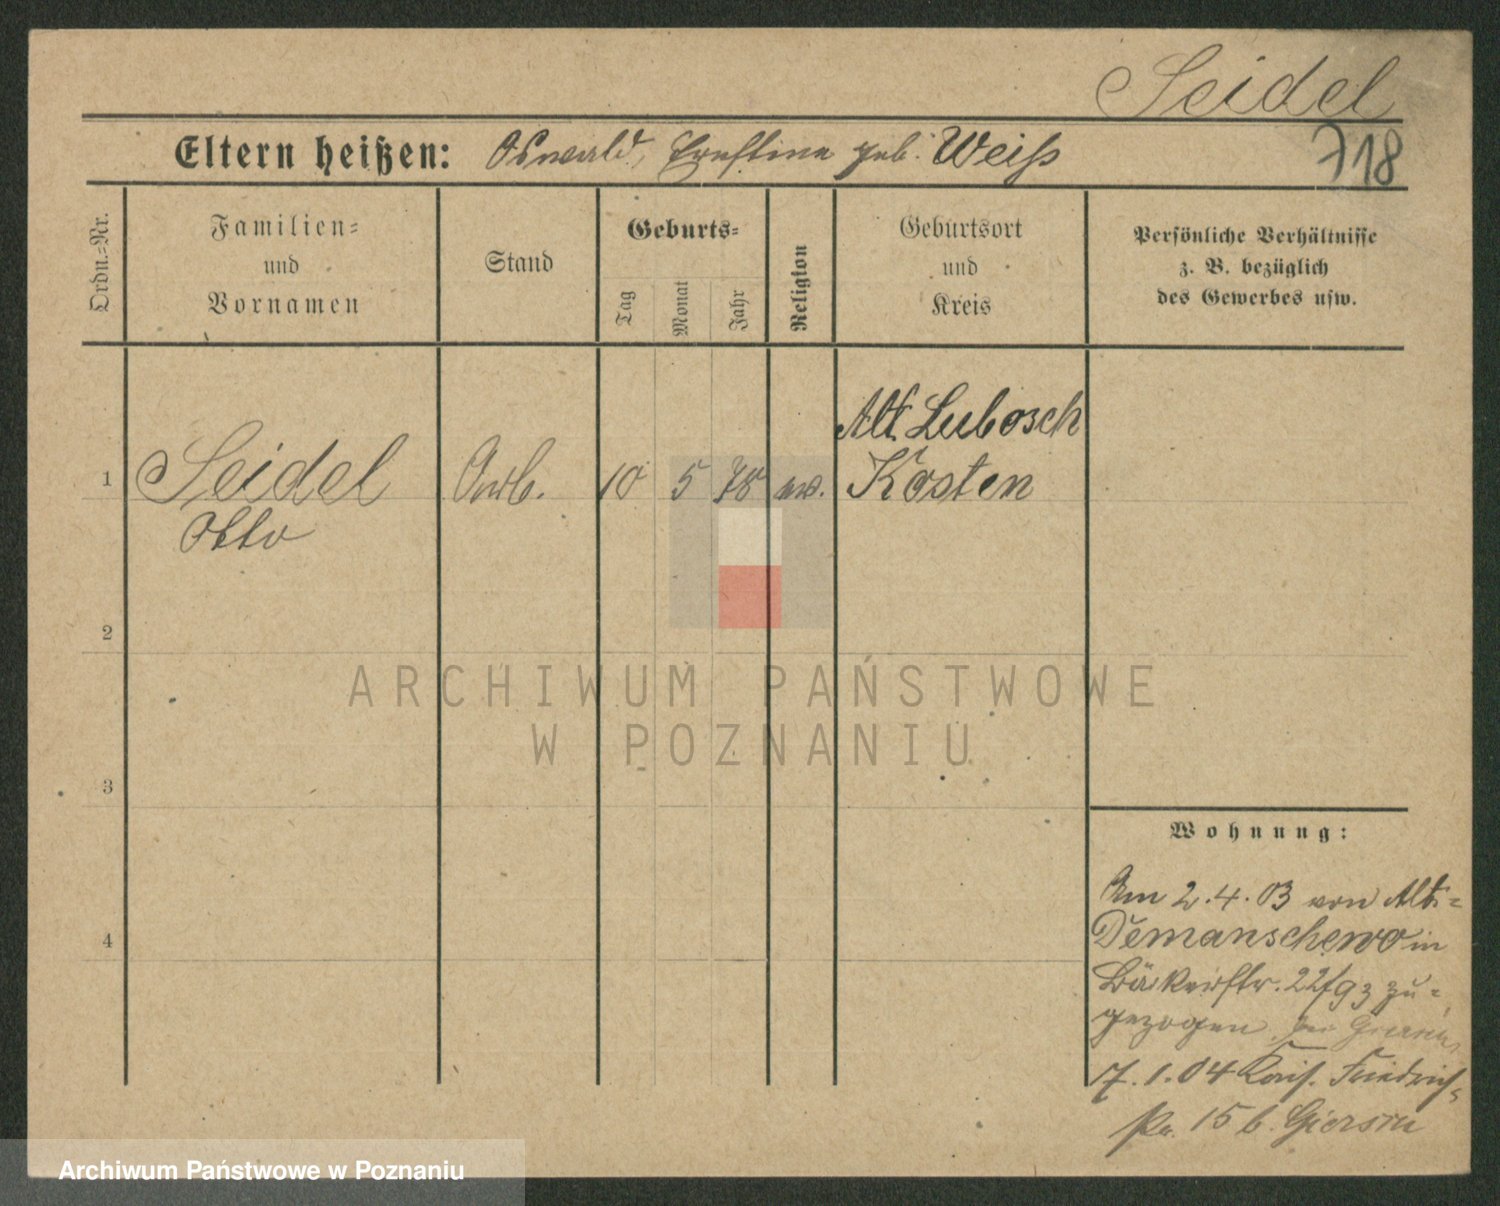 Seidel
718
Eltern heißen: Oswald, Ernstine geb. Weiss
Ordn.-Nr.
Familien-
und
Vornamen
Stand
Geburts-
Tag
Monat
Jahr
Religion
Geburtsort
und
Kreis
Persönliche Verhältnisse
z. B. bezüglich
des Gewerbes usw.
Alt Lubosch
1 Seidel Arb. 10 5 78 ev. Kosten
Otto
2
ARCHIWUM PAŃSTWOWE
W POZNANIU
3
Wohnung:
Am 2.4.03 von Alt-
4
Demanschewo in
Bäckerstr. 22/93 zu-
gezogen bei
7.1.04 Kais. Friedrich-
15 b. Giersch
Archiwum Państwowe w Poznaniu